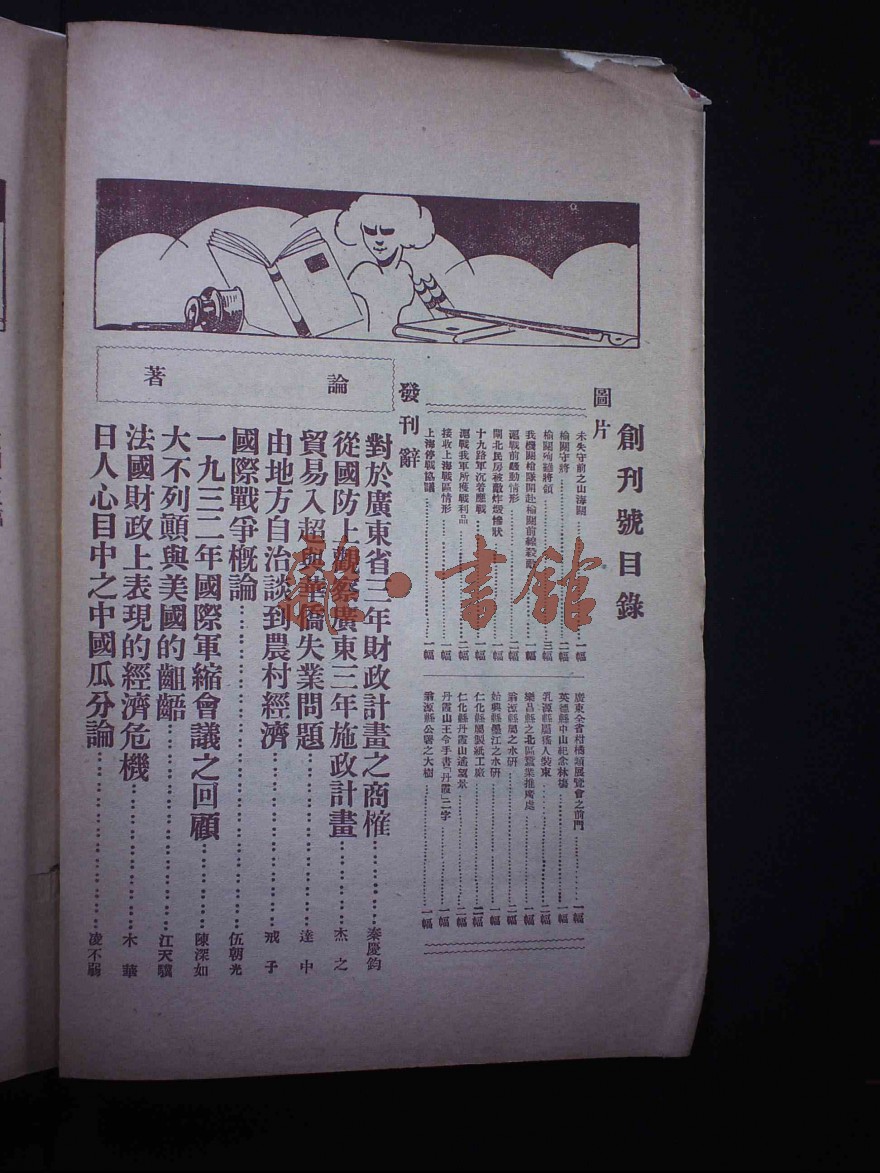 創刊號目錄
圖片
未失守前之山海關……一幅
榆關守將……二幅
榆關殉難將領……三幅
我機關槍隊開赴榆關前線殺敵……一幅
滬戰前騷動情形……二幅
閘北民房被敵炸燬慘狀……一幅
十九路軍沉着應戰……一幅
滬戰我軍所獲戰利品……二幅
接收上海戰區情形……一幅
上海停戰協議……一幅
廣東全省村橋頭展覽會之前門……一幅
英德縣中山紀念林場……一幅
乳源縣屬傜人裝束……二幅
樂昌縣之北區蠶業推廣處……一幅
翁源縣屬之水硏……二幅
始興縣墨江之水硏……一幅
仁化縣屬製紙工廠……二幅
仁化縣丹霞山遙望景……二幅
丹霞山王令手書「丹霞」二字……一幅
翁源縣公署之大樹……一幅
發刊辭
論著
對於廣東省三年財政計畫之商榷……秦慶鈞
從國防上觀察廣東三年施政計畫……杰之
貿易入超與華僑失業問題……達中
由地方自治談到農村經濟……戒予
國際戰爭概論……伍朝光
一九三二年國際軍縮會議之回顧……陳深如
大不列顛與美國的齟齬……江天驥
法國財政上表現的經濟危機……木華
日人心目中之中國瓜分論……凌不弱
龍·書館